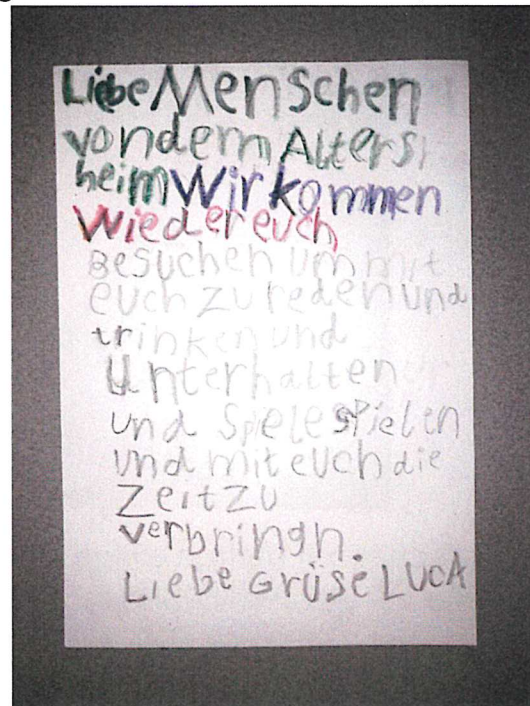 Liebe Menschen
von dem Alters
heim Wir kommen
wieder euch
Besuchen um mit
euch zu reden und
trinken und
Unterhalten
und Spiele spielen
und mit euch die
Zeit zu
verbringn.
Liebe Grüse LUCA